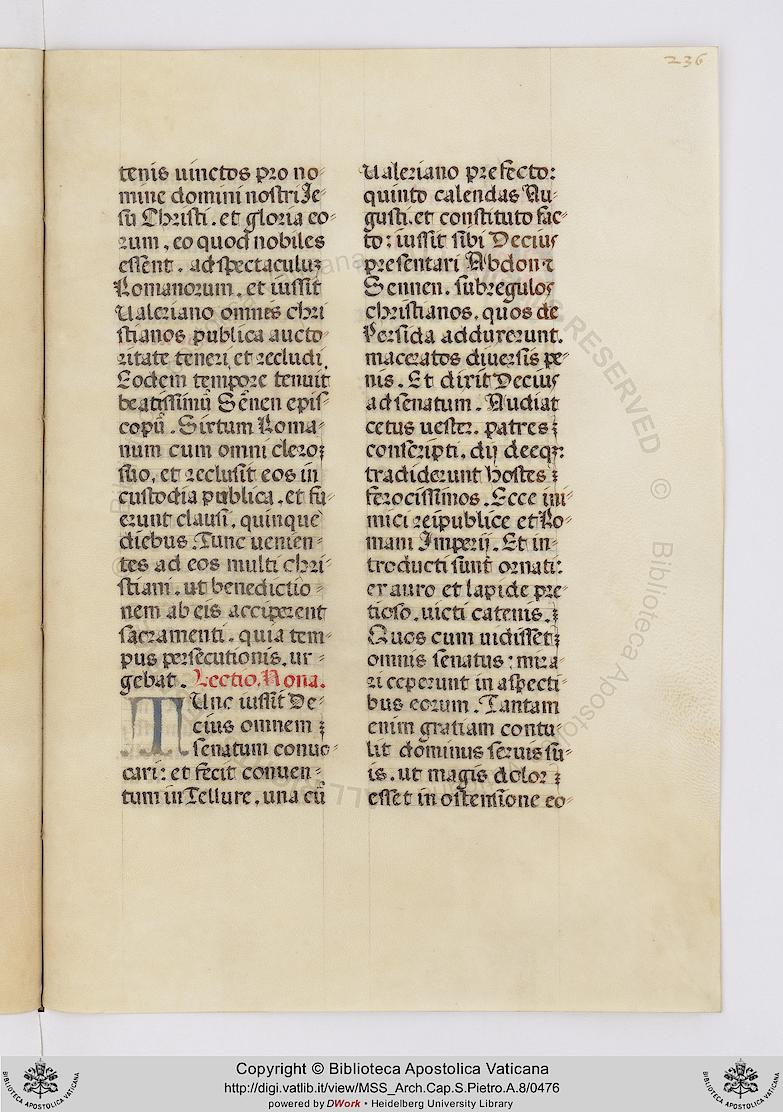 236
tenis uinctos pro no-
mine domini nostri Ie-
su Christi. et gloria eo-
rum, eo quod nobiles
essent. ad spectaculuʒ
Romanorum. et iussit
Ualeriano omnes chri
stianos publica aucto-
ritate teneri, et recludi.
Eodem tempore tenuit
beatissimũ Sẽnen epis-
copũ. Sixtum Roma-
num cum omni clero
suo, et reclusit eos in
custodia publica. et fu-
erunt clausi, quinque
diebus. Tunc uenien-
tes ad eos multi chri-
stiani. ut benedictio-
nem ab eis acciperent
sacramenti. quia tem-
pus persecutionis. ur-
gebat. Lectio. Nona.
TUnc iussit De-
cius omnem
senatum conuo-
cari: et fecit conuen-
tum in Tellure. una cũ
Ualeriano prefecto:
quinto calendas Au-
gusti. et constituto fac-
to: iussit sibi Decius
presentari Abdon ⁊
Sennen. subregulos
christianos. quos de
Persida adduxerunt.
maceratos diuersis pe-
nis. Et dixit Decius
ad senatum. Audiat
cetus uester. patres
conscripti. dij deeqʒ:
tradiderunt hostes
ferocissimos. Ecce ini-
mici reipublice et Ro-
mani Imperij. Et in-
troducti sunt ornati:
ex auro et lapide pre-
tioso. uicti catenis.
Quos cum uidisset
omnis senatus: mira-
ri ceperunt in aspecti-
bus eorum. Tantam
enim gratiam contu-
lit dominus seruis su-
is. ut magis dolor
esset in ostensione eo-
Copyright © Biblioteca Apostolica Vaticana
http://digi.vatlib.it/view/MSS_Arch.Cap.S.Pietro.A.8/0476
powered by DWork • Heidelberg University Library